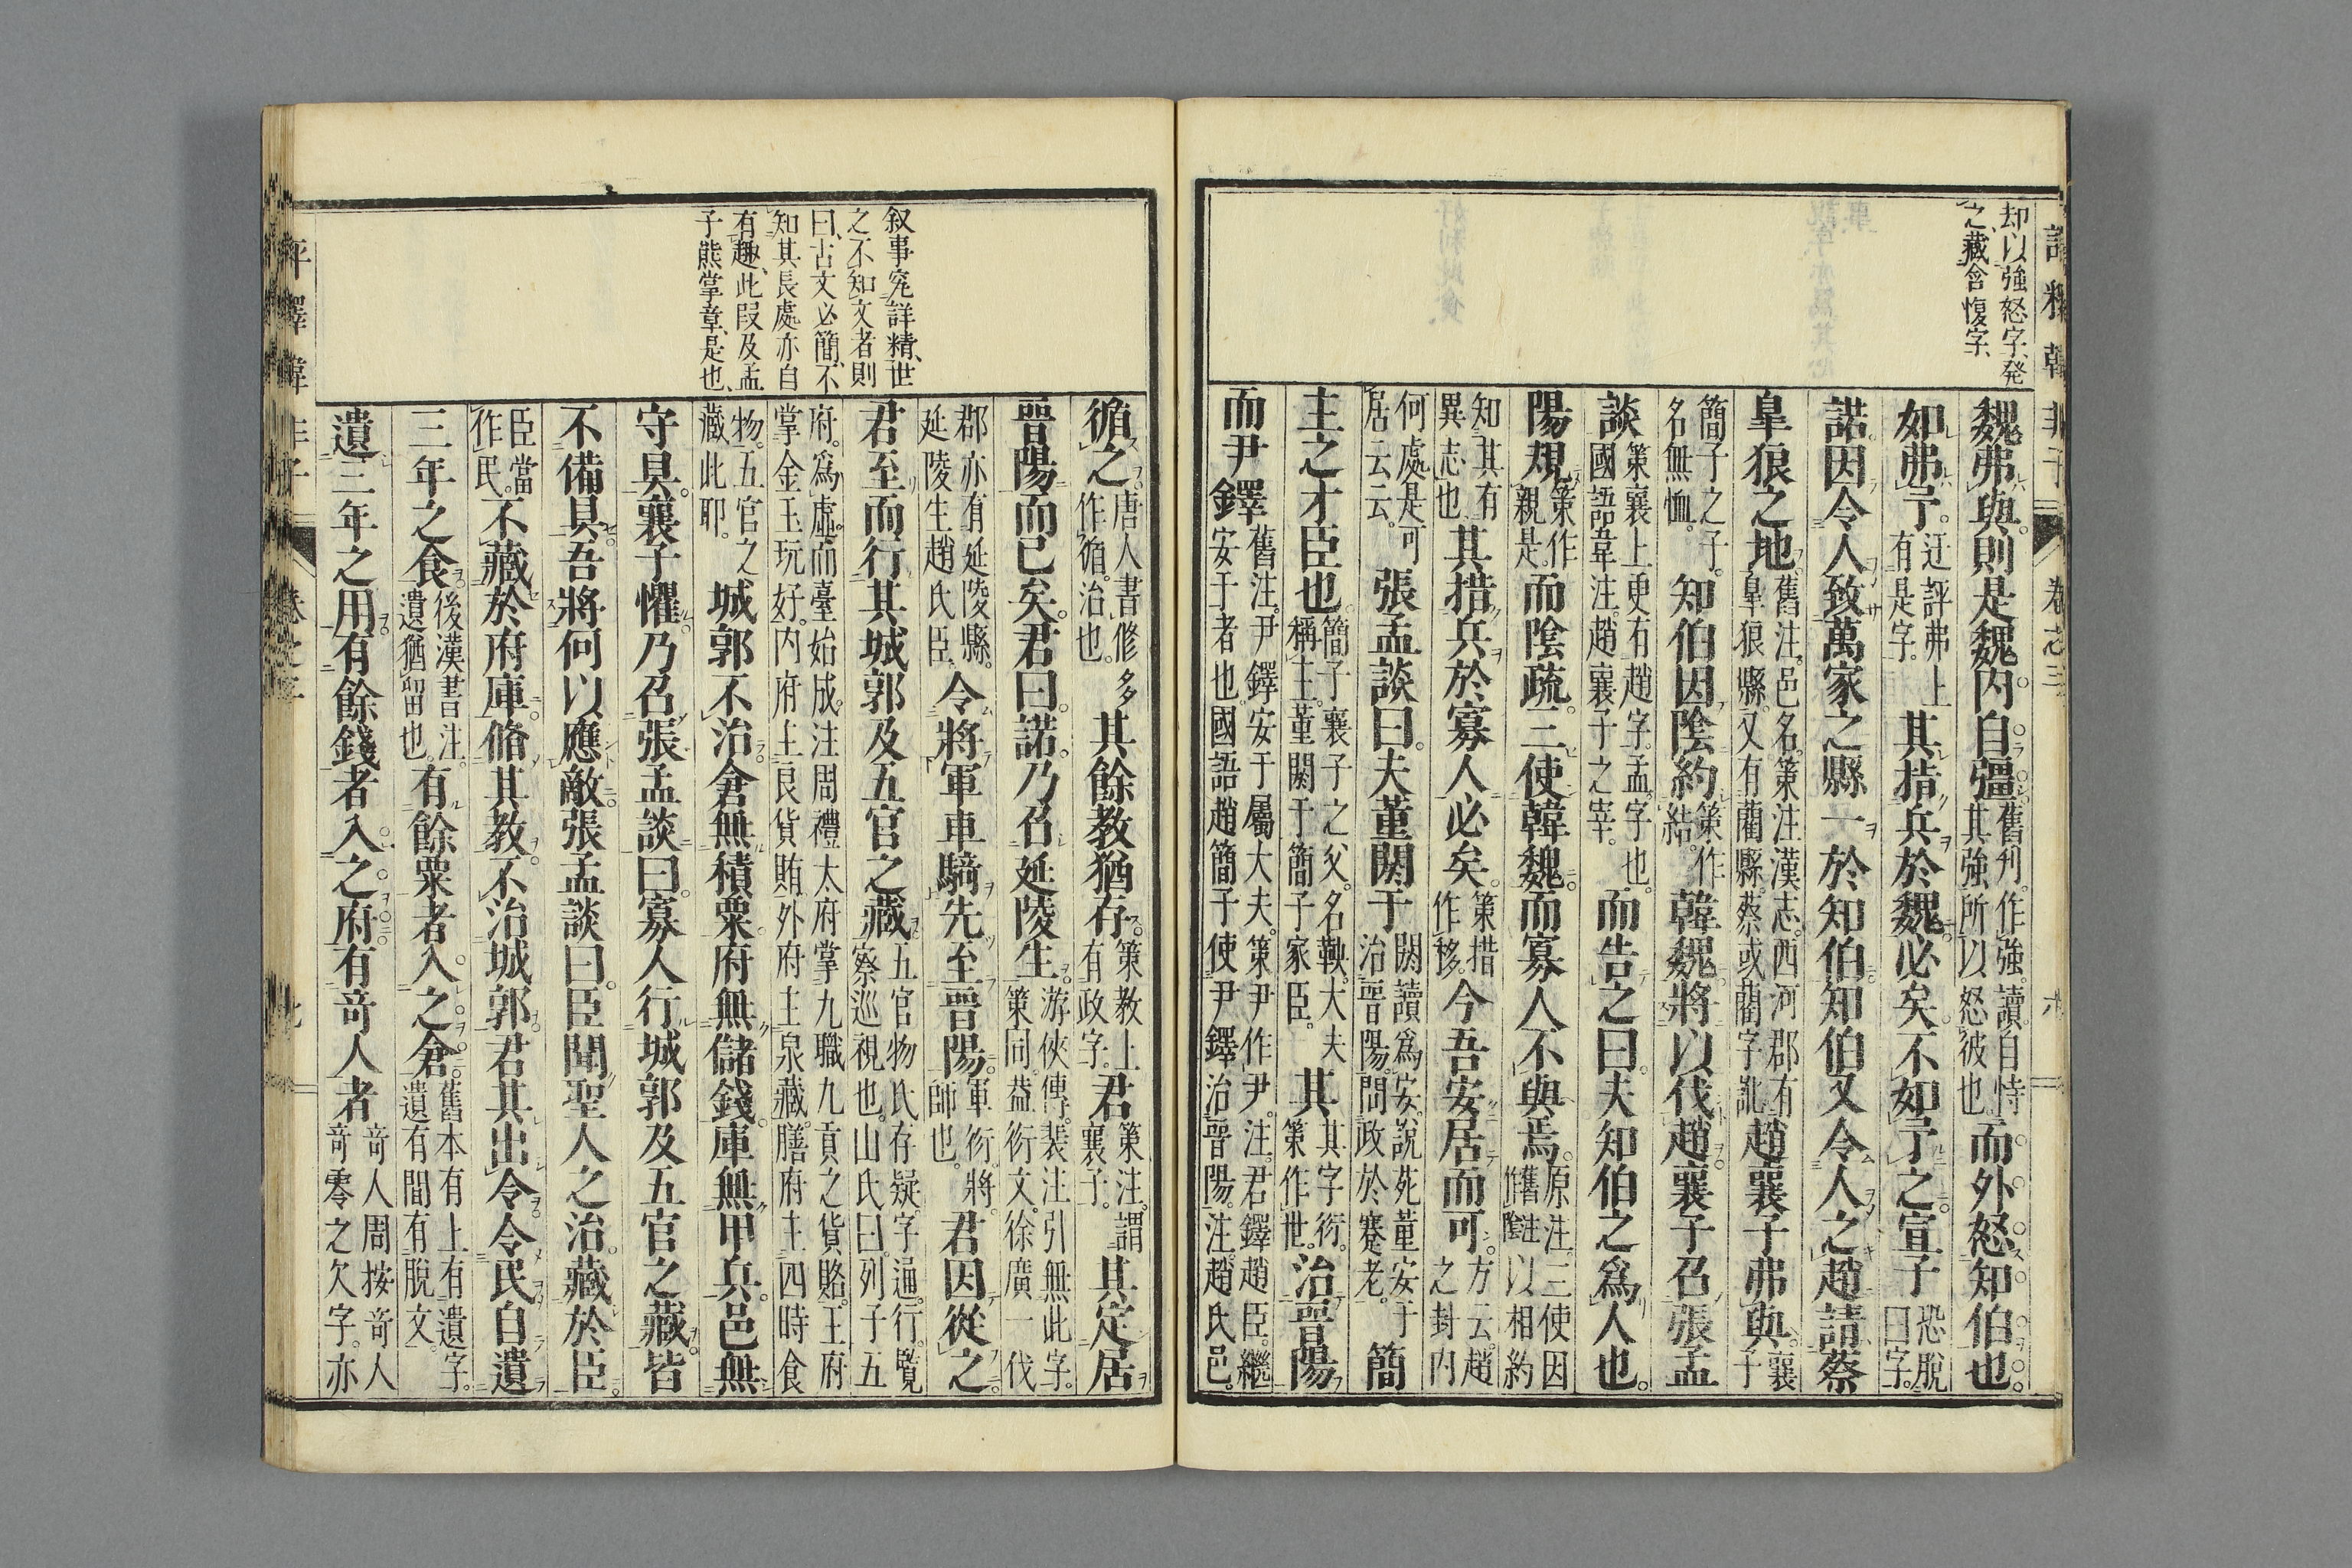 却以強怒字、発
之、藏含愎字、
魏弗與。則是魏內自彊舊刋。作強。讀自恃其強。所以怒彼也。而外怒知伯也。
如弗予。迂評弗上有是字。其措兵於魏必矣。不如予之。宣子恐脫曰字。
諾因令人致萬家之縣一於知伯。知伯又令人之趙請蔡
皐狼之地。舊注。邑名。策注漢志。西河郡有皐狼縣。又有藺縣。蔡或藺字訛。趙襄子弗與。襄子
簡子之子。名無恤。知伯因陰約策作結。韓魏將以伐趙。襄子召張孟
談策襄上更有趙字。孟字也。國語韋注。趙襄子之宰。而告之曰。夫知伯之爲人也。
陽規策作親是。而陰疏。三使韓魏。而寡人不與焉。原注。三使因舊注作陰以相約
知其有異志也其措兵於寡人必矣。策措作移。今吾安居而可。方云。趙之封內
何處是可居云云。張孟談曰。夫董閼于閼讀爲安。說苑董安于治晋陽。問政於蹇老。簡
主之才臣也。簡子襄子之父。名鞅。大夫稱主。董閼于簡子家臣。其其字衍。策作世。治晋陽
而尹鐸舊注。尹鐸安于屬大夫。策尹作尹。注。君鐸趙臣。繼安于者也。國語趙簡子使尹鐸治晋陽。注。趙氏邑。
叙事究詳精、世
之不知文者則
曰、古文必簡、不
知其長處亦自
有趣、此叚及孟
子熊掌章、是也、
循之。唐人書。修多作循。治也。其餘教猶存。策教上有政字。君策注。謂襄子。其定居
晋陽而已矣。君曰。諾。乃召延陵生。游俠傳。裴注引無此字。策同。益衍文。徐廣一伐
郡亦有延陵縣。延陵生趙氏臣。令將軍車騎先至晋陽。軍衍。將師也。君因從之
君至而行其城郭及五官之藏五官物氏存疑。字逼。行。覽察巡視也。山氏曰。列子五
府。爲虛。而臺始成。注周禮太府掌九職九貢之貨賂。王府掌金玉玩好。內府主良貨賄。外府主泉藏。膳府主四時食
物。五官之藏此耶。城郭不治。倉無積粟。府無儲錢。庫無甲兵。邑無
守具。襄子懼。乃召張孟談曰。寡人行城郭及五官之藏。皆
不備具。吾將何以應敵。張孟談曰。臣聞聖人之治。藏於臣。
臣當作民。不藏於府庫。脩其教。不治城郭。君其出令。令民自遺
三年之食後漢書注。遺猶留也。有餘粟者入之倉。舊本有上有遺字。遺有間有脫文。
遺三年之用。有餘錢者入之府。有竒人者竒人周按竒人竒零之欠字。亦